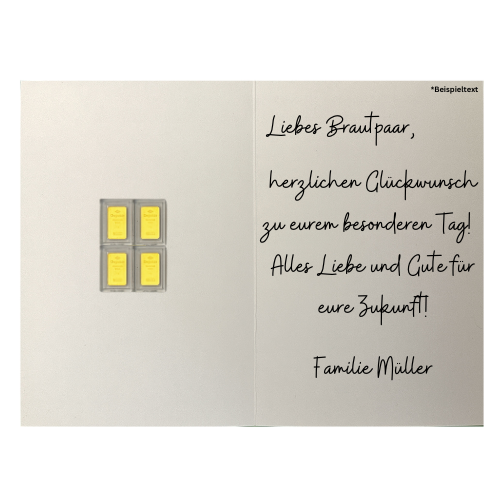 *Beispieltext
Liebes Brautpaar,
herzlichen Glückwunsch
zu eurem besonderen Tag!
Alles Liebe und Gute für
eure Zukunft!
Familie Müller